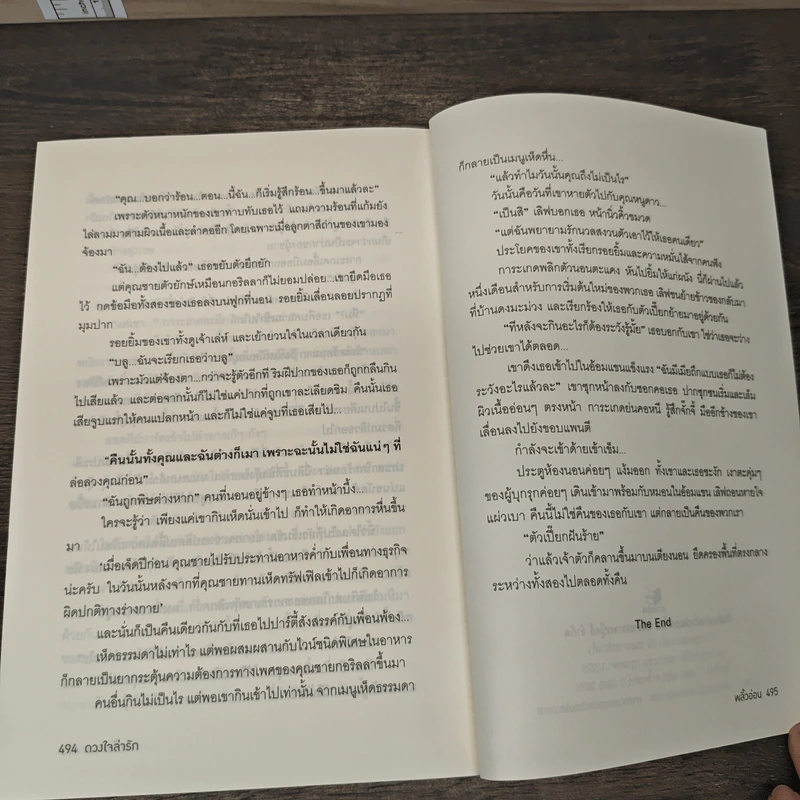 “คุณ...บอกว่าร้อน...ตอน...นี้ฉัน...ก็เริ่มรู้สึกร้อน...ขึ้นมาแล้วละ”
เพราะตัวหนาหนักของเขาทาบทับเธอไว้ แถมความร้อนที่แก้มยัง
ไล่ลามมาตามผิวเนื้อและลำคออีก โดยเฉพาะเมื่อลูกตาสีถ่านของเขามอง
จ้องมา
“ฉัน...ต้องไปแล้ว” เธอขยับตัวยึกยัก
แต่คุณชายตัวยักษ์เหมือนกอริลลาก็ไม่ยอมปล่อย...เขายึดมือเธอ
ไว้ กดข้อมือทั้งสองของเธอลงบนฟูกที่นอน รอยยิ้มเลื่อนลอยปรากฏที่
มุมปาก
รอยยิ้มของเขาทั้งดูเจ้าเล่ห์ และเย้ายวนใจในเวลาเดียวกัน
“บลู...ฉันจะเรียกเธอว่าบลู”
เพราะมัวแต่จ้องตา...กว่าจะรู้ตัวอีกที ริมฝีปากของเธอก็ถูกกลืนกิน
ไปเสียแล้ว และต่อจากนั้นก็ไม่ใช่แค่ปากที่ถูกเขาละเลียดชิม คืนนั้นเธอ
เสียจูบแรกให้คนแปลกหน้า และก็ไม่ใช่แค่จูบที่เธอเสียไป...
“คืนนั้นทั้งคุณและฉันต่างก็เมา เพราะฉะนั้นไม่ใช่ฉันแน่ๆ ที่
ล่อลวงคุณก่อน”
“ฉันถูกพิษต่างหาก” คนที่นอนอยู่ข้างๆ เธอทำหน้าบึ้ง...
ใครจะรู้ว่า เพียงแค่เขากินเห็ดนั่นเข้าไป ก็ทำให้เกิดอาการหื่นขึ้น
มา
‘เมื่อเจ็ดปีก่อน คุณชายไปรับประทานอาหารค่ำกับเพื่อนทางธุรกิจ
น่ะครับ ในวันนั้นหลังจากที่คุณชายทานเห็ดทรัฟเฟิลเข้าไปก็เกิดอาการ
ผิดปกติทางร่างกาย’
และนั่นก็เป็นคืนเดียวกันกับที่เธอไปปาร์ตี้สังสรรค์กับเพื่อนพ้อง...
เห็ดธรรมดาไม่เท่าไร แต่พอผสมผสานกับไวน์ชนิดพิเศษในอาหาร
ก็กลายเป็นยากระตุ้นความต้องการทางเพศของคุณชายกอริลลาขึ้นมา
คนอื่นกินไม่เป็นไร แต่พอเขากินเข้าไปเท่านั้น จากเมนูเห็ดธรรมดา
494 ดวงใจล่ารัก
ก็กลายเป็นเมนูเห็ดหื่น...
“แล้วทำไมวันนั้นคุณถึงไม่เป็นไร”
วันนั้นคือวันที่เขาหายตัวไปกับคุณหนูดาว...
“เป็นสิ” เลิฟบอกเธอ หน้านิ่วคิ้วขมวด
“แต่ฉันพยายามรักนวลสงวนตัวเอาไว้ให้เธอคนเดียว”
ประโยคของเขาทั้งเรียกรอยยิ้มและความหมั่นไส้จากคนฟัง
การะเกดพลิกตัวนอนตะแคง หันไปยิ้มให้แก่ผนัง นี่ก็ผ่านไปแล้ว
หนึ่งเดือนสำหรับการเริ่มต้นใหม่ของพวกเธอ เลิฟขนย้ายข้าวของกลับมา
ที่บ้านดงมะม่วง และเรียกร้องให้เธอกับตัวเปี๊ยกย้ายมาอยู่ด้วยกัน
“ทีหลังจะกินอะไรก็ต้องระวังรู้มั้ย” เธอบอกกับเขา ใช่ว่าเธอจะว่าง
ไปช่วยเขาได้ตลอด...
เขาดึงเธอเข้าไปในอ้อมแขนแข็งแรง “ฉันมีเมียถึกแบบเธอก็ไม่ต้อง
ระวังอะไรแล้วละ” เขาซุกหน้าลงกับซอกคอเธอ ปากซุกซนเริ่มและเล็ม
ผิวเนื้ออ่อนๆ ตรงหน้า การะเกดย่นคอหนี รู้สึกจั๊กจี้ มืออีกข้างของเขา
เลื่อนลงไปยังขอบแพนตี้
กำลังจะเข้าด้ายเข้าเข็ม...
ประตูห้องนอนค่อยๆ แง้มออก ทั้งเขาและเธอชะงัก เงาตะคุ่มๆ
ของผู้บุกรุกค่อยๆ เดินเข้ามาพร้อมกับหมอนในอ้อมแขน เลิฟถอนหายใจ
แผ่วเบา คืนนี้ไม่ใช่คืนของเธอกับเขา แต่กลายเป็นคืนของพวกเรา
“ตัวเปี๊ยกฝันร้าย”
ว่าแล้วเจ้าตัวก็คลานขึ้นมาบนเตียงนอน ยึดครองพื้นที่ตรงกลาง
ระหว่างทั้งสองไปตลอดทั้งคืน
The End
พลิ้วอ่อน 495